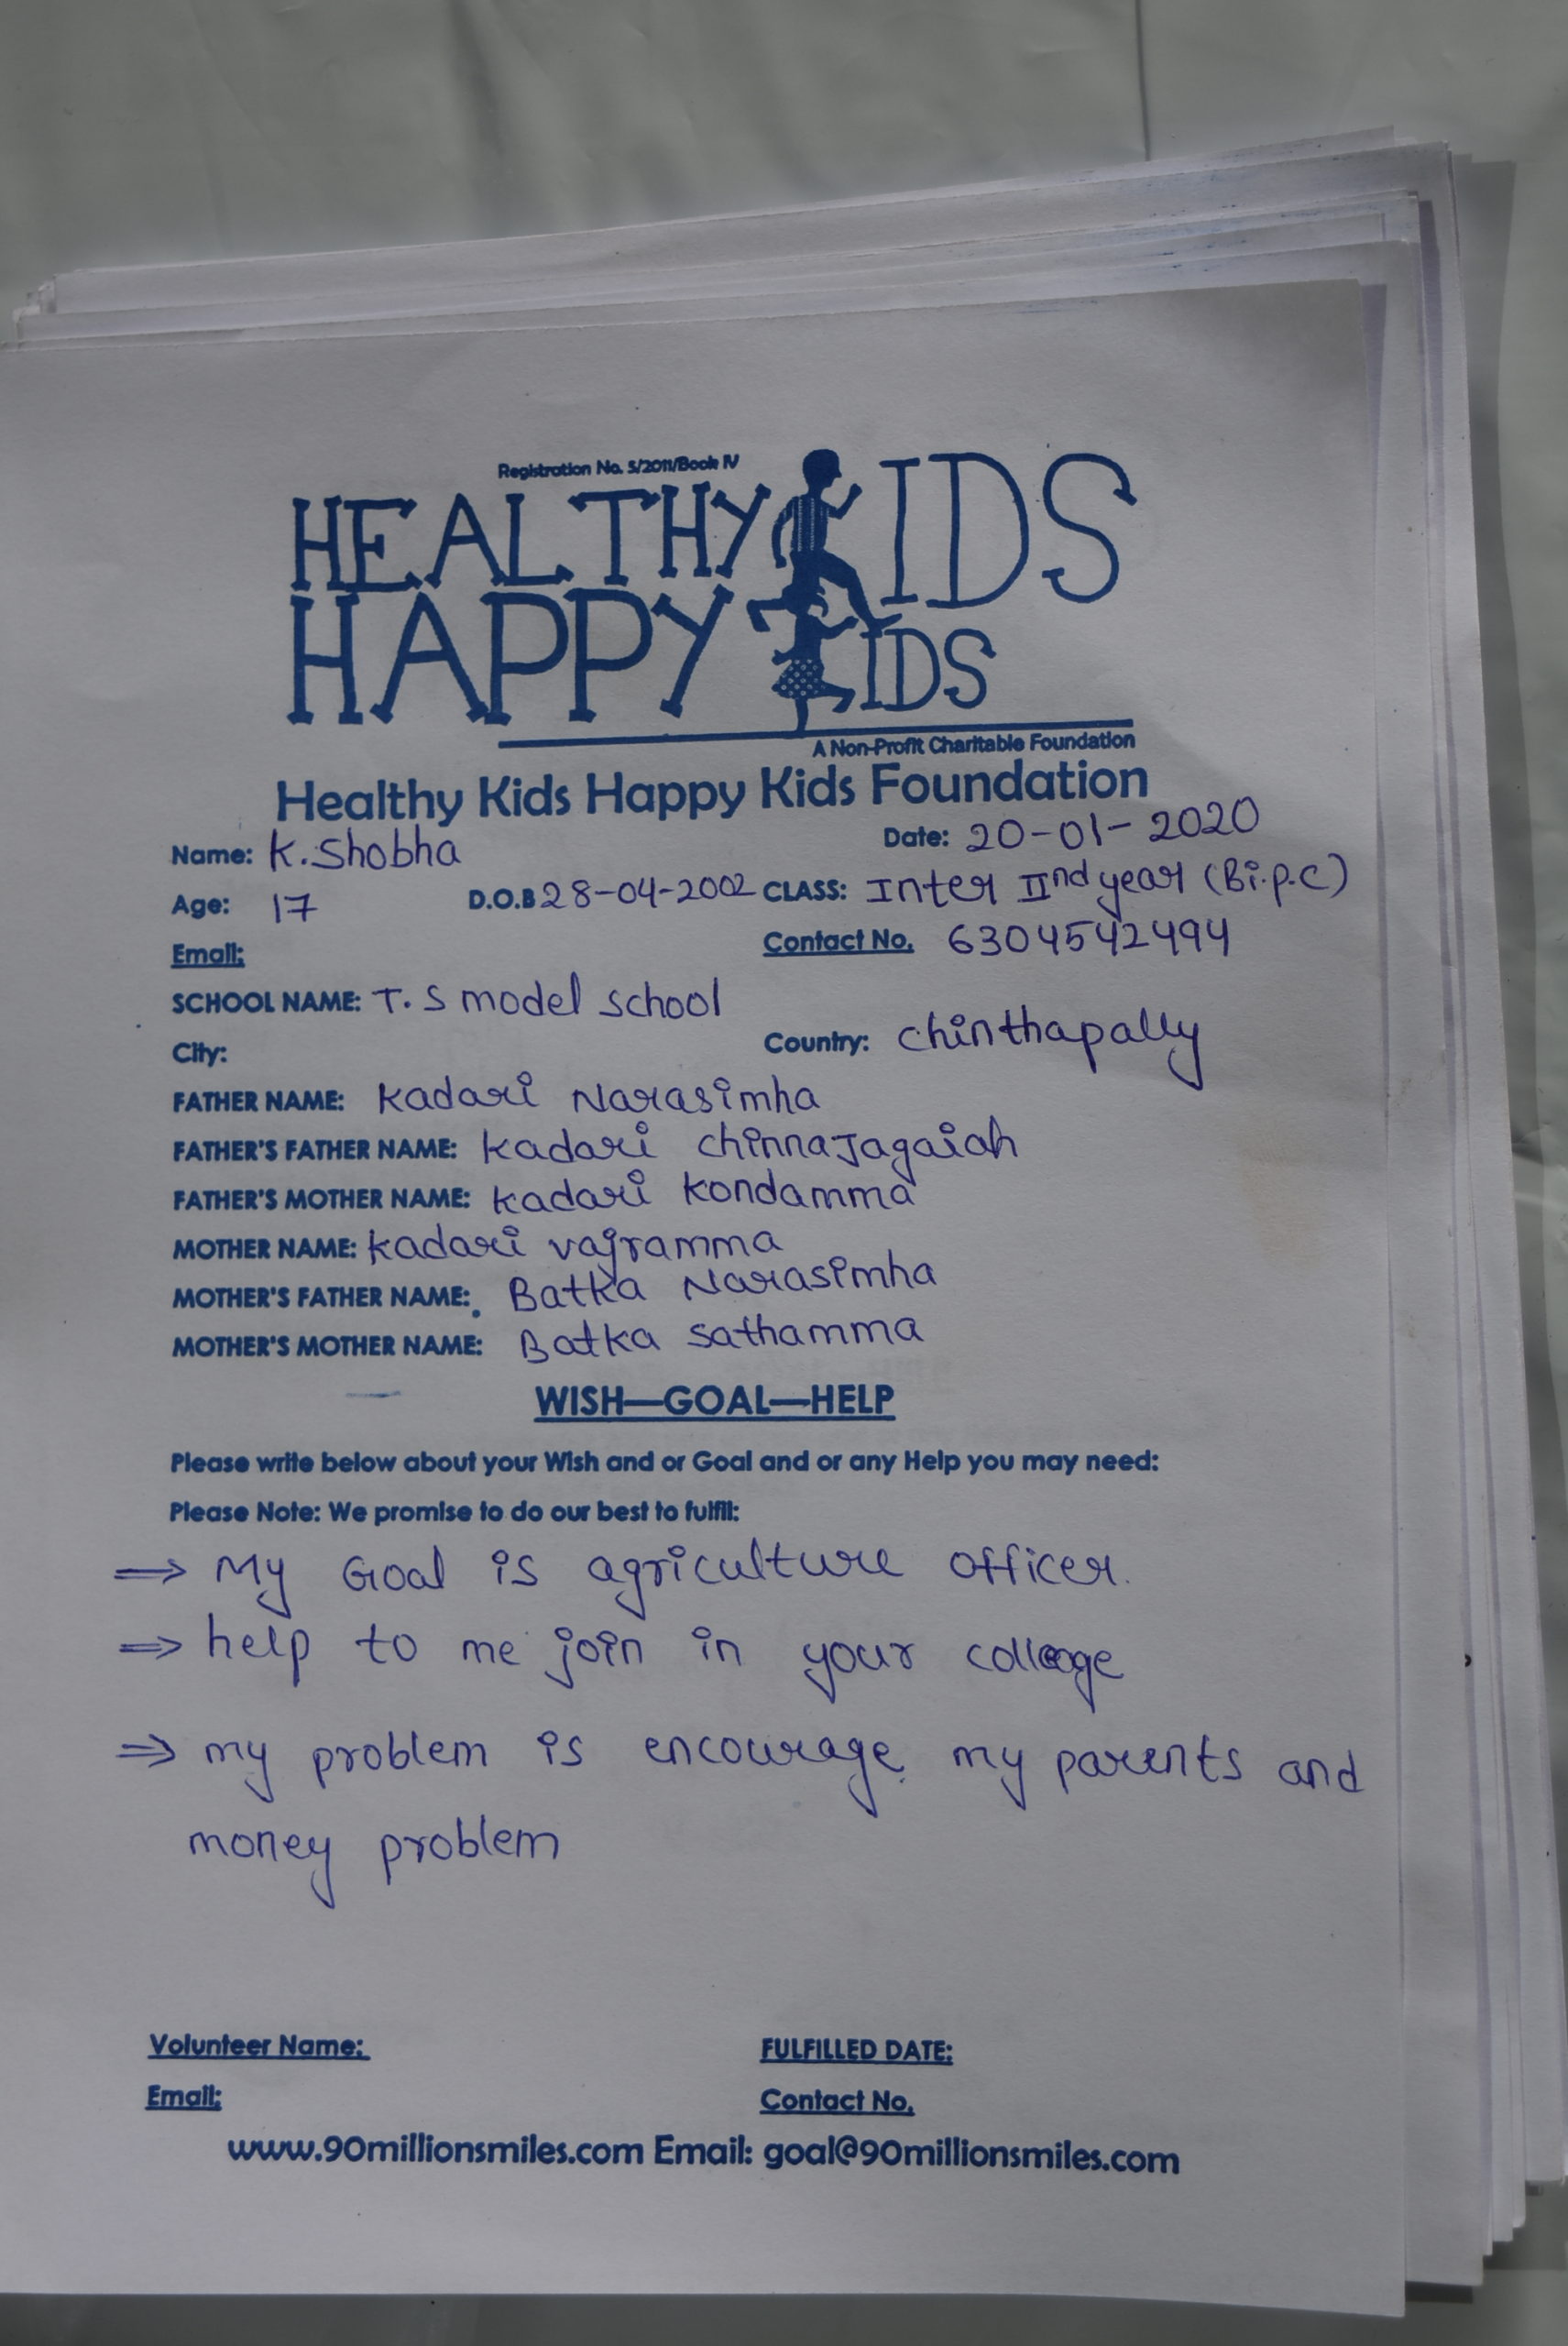 Registration No. 5/2011/Book IV
HEALTHY KIDS
HAPPY KIDS
A Non-Profit Charitable Foundation
Healthy Kids Happy Kids Foundation
Name: K. Shobha Date: 20-01-2020
Age: 17 D.O.B 28-04-2002 CLASS: Inter IInd year (Bi.p.c)
Email: Contact No. 6304542494
SCHOOL NAME: T. S model school
City: Country: chinthapally
FATHER NAME: Kadari Narasimha
FATHER'S FATHER NAME: Kadari chinnaJagaiah
FATHER'S MOTHER NAME: Kadari Kondamma
MOTHER NAME: Kadari vajramma
MOTHER'S FATHER NAME: Batka Narasimha
MOTHER'S MOTHER NAME: Batka Sathamma
WISH—GOAL—HELP
Please write below about your Wish and or Goal and or any Help you may need:
Please Note: We promise to do our best to fulfil:
⇒ My Goal is agriculture officer.
⇒ help to me join in your college
⇒ my problem is encourage my parents and
money problem
Volunteer Name: FULFILLED DATE:
Email: Contact No.
www.90millionsmiles.com Email: goal@90millionsmiles.com